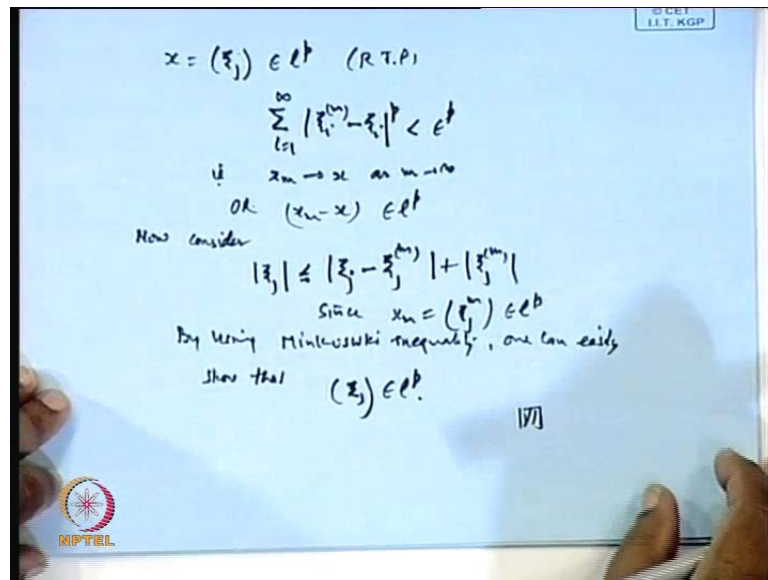 © CET
I.I.T. KGP
x = (ξ_j) ∈ l^p (R.T.P)
∑_{i=1}^{∞} |ξ_i^{(m)} - ξ_i|^p < ε^p
i.e. x_m → x as m → ∞
OR (x_m - x) ∈ l^p
Now consider
|ξ_j| ≤ |ξ_j - ξ_j^{(m)}| + |ξ_j^{(m)}|
Since x_m = (ξ_j^m) ∈ l^p
By using Minkowski inequality, one can easily
show that (ξ_j) ∈ l^p.
NPTEL